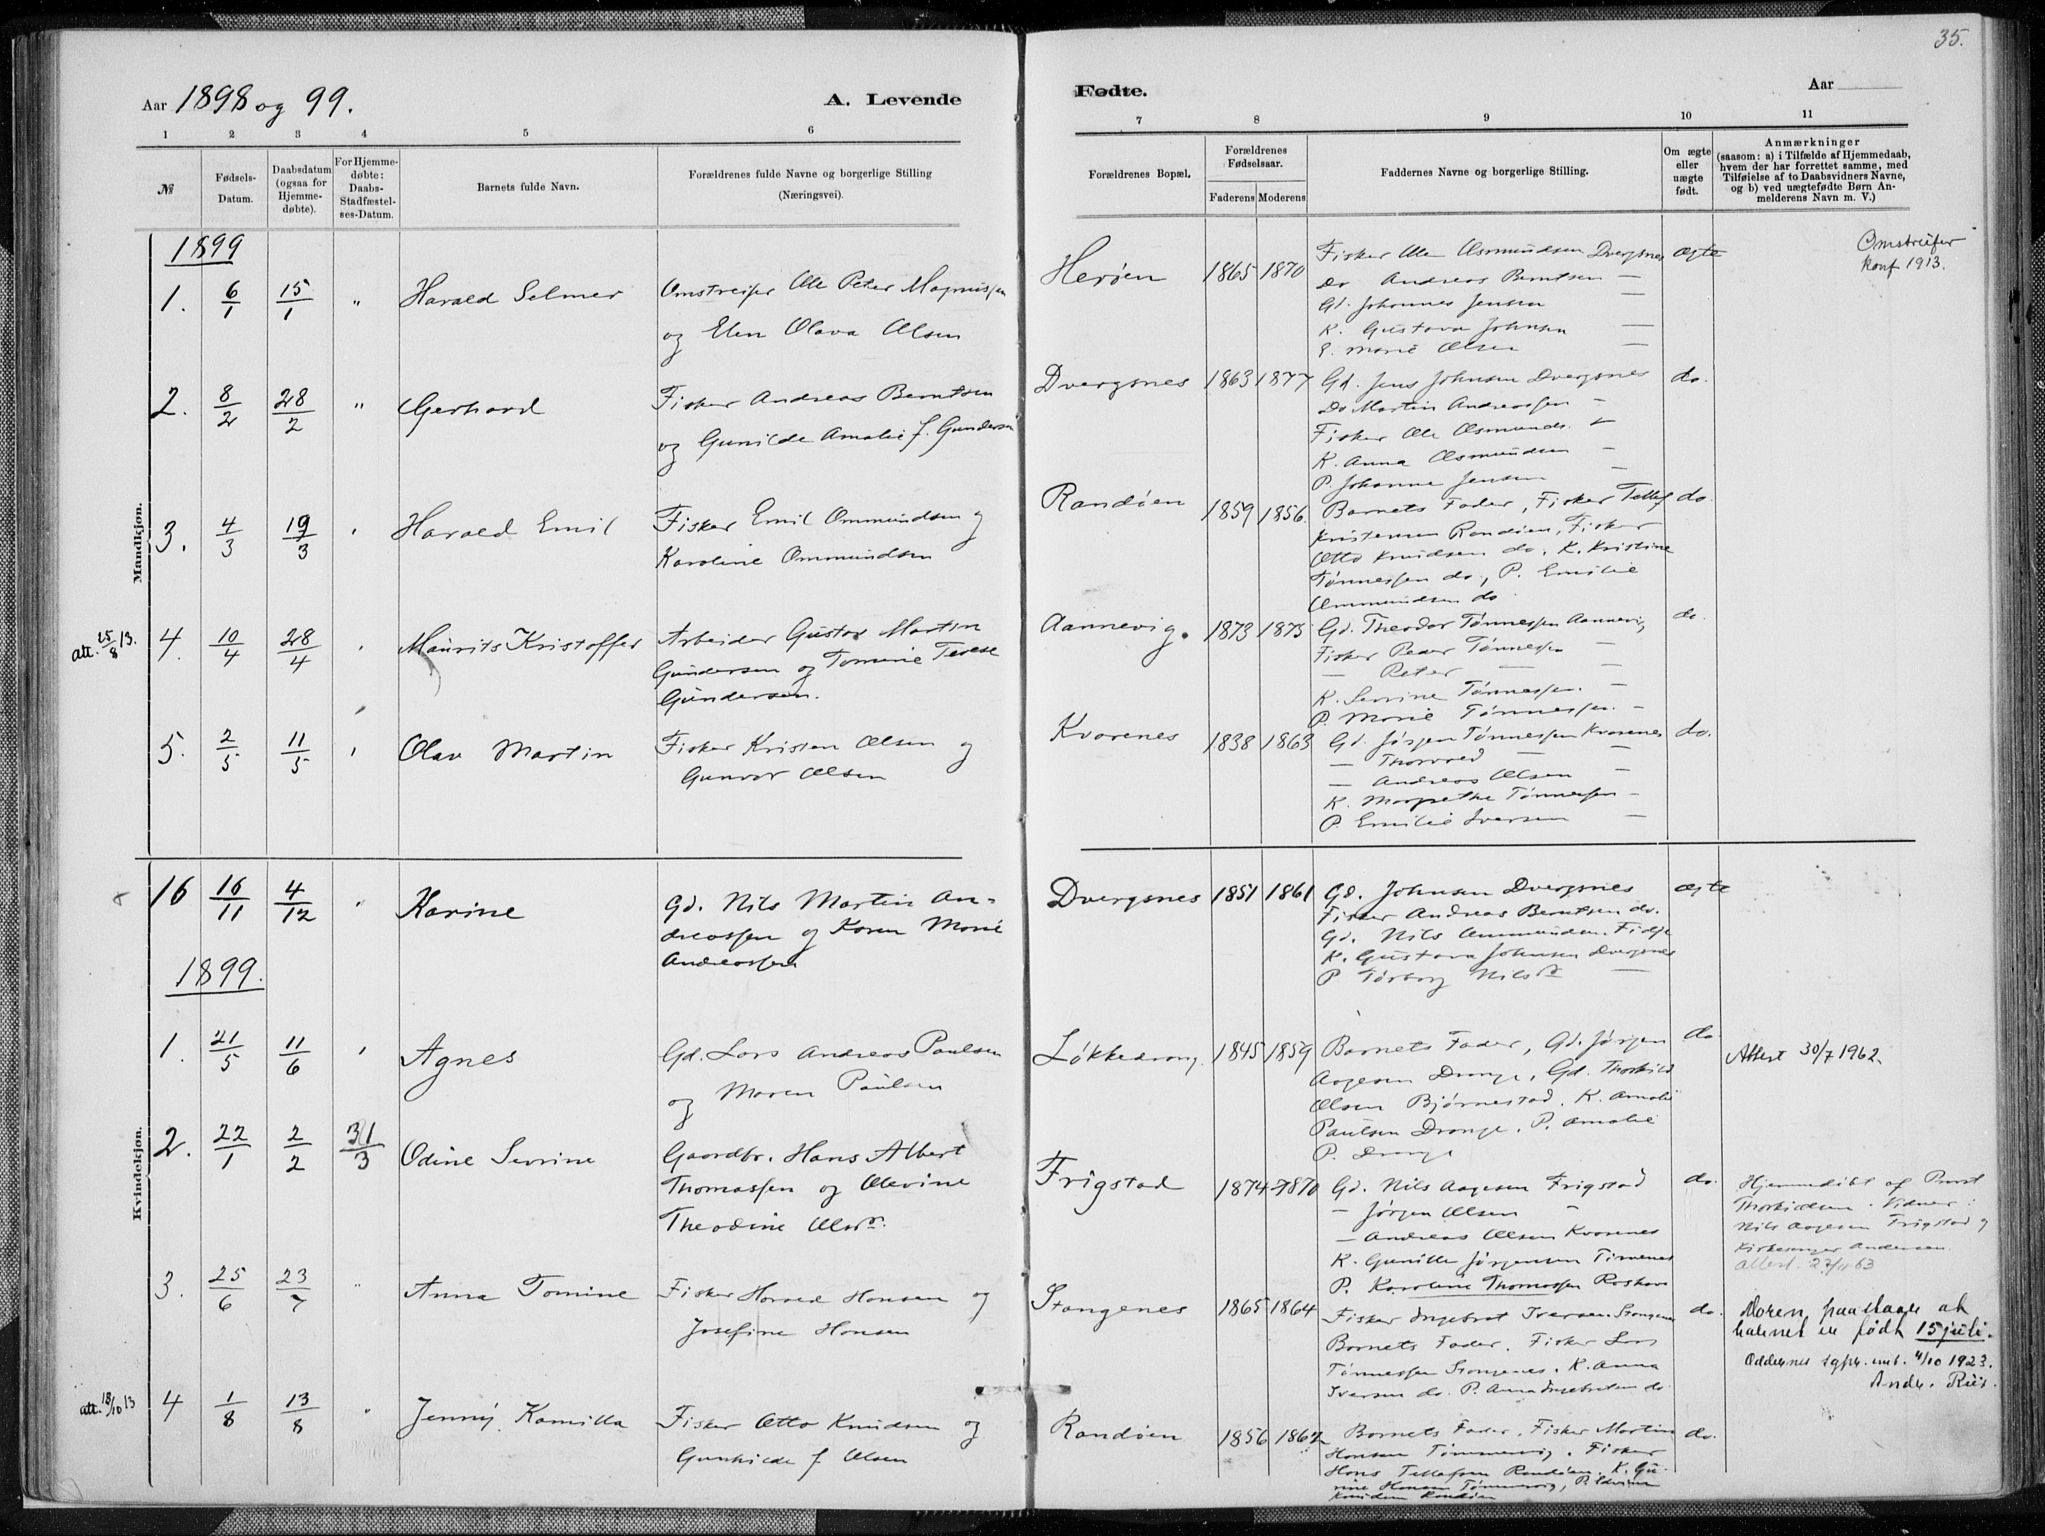 35.
Aar 1898 og 99.
A. Levende
Fødte.
Aar
1 2 3 4 5 6
7 8 9 10 11
№
Fødsels-Datum.
Daabsdatum (ogsaa for Hjemme-døbte).
For Hjemme-døbte: Daabs-Stadfæstel-ses-Datum.
Barnets fulde Navn.
Forældrenes fulde Navne og borgerlige Stilling
(Næringsvei).
Forældrenes Bopæl.
Forældrenes Fødselsaar.
Faderens Moderens
Faddernes Navne og borgerlige Stilling.
Om ægte eller uægte født.
Anmærkninger
(saasom: a) i Tilfælde af Hjemmedaab,
hvem der har forrettet samme, med
Tilføielse af to Daabsvidners Navne,
og b) ved uægtefødte Børn An-
melderens Navn m. V.)
Mandkjøn.
1899
1. 6/1 15/1 " Harald Selmer
Omstreifer Ole Peter Magnussen
og Elen Olava Olsen
Herøen 1865 1870
Fisker Ole Osmundsen Dvergsnes
Do Andreas Berntsen —
Gd. Johannes Jensen —
K. Gustava Johnsen —
P. Marie Olsen —
ægte
Omstreifer
konf 1913.
2. 8/2 28/2 " Gerhard
Fisker Andreas Berntsen
og Gunilde Amalie f. Gundersen
Dvergsnes 1863 1877
Gd. Jens Johnsen Dvergsnes
Do Martin Andreassen -
Fisker Ole Osmunds. -
K. Anna Osmundsen -
P. Johanne Jensen -
do.
3. 4/3 19/3 ' Harald Emil
Fisker Emil Ommundsen og
Karoline Ommundsen
Randøen 1859 1856.
Barnets Fader, Fisker Tellef
Kristensen Randøen, Fisker
Otto Knudsen do, K. Kristine
Tønnessen do, P. Emilie
Ommundsen do
do.
att. 25/8 13.
4. 10/4 28/4 ' Maurits Kristoffer
Arbeider Gustav Martin
Gundersen og Tomine Terese
Gundersen.
Aannevig. 1873 1875
Gd. Theodor Tønnessen Aannevig
Fisker Peder Tønnessen -
— Peter — -
K. Serine Tønnessen. -
P. Marie Tønnessen. -
do.
5. 2/5 11/5 ' Olav Martin
Fisker Kristen Olsen og
Gunvor Olsen
Kvarenes 1838 1863
Gd. Jørgen Tønnessen Kvarenes
— Thorvald — —
— Andreas Olsen -
K. Margrethe Tønnessen -
P. Emilie Iversen —
do.
Kvindekjøn.
16 16/11 4/12 " Karine
Gd. Nils Martin An-
dreassen og Karen Marie
Andreassen
Dvergsnes 1851 1861
Gd. Johnsen Dvergsnes
Fisker Andreas Berntsen do.
Gd. Nils Ommundsen Fidje
K. Gustava Johnsen Dvergsnes
P Torborg Nilsdr —
ægte
1899.
1. 21/5 11/6 ' Agnes
Gd. Lars Andreas Paulsen
og Maren Paulsen
Løkkedrang. 1845 1859
Barnets Fader, Gd. Jørgen
Aagesen Drange, Gd. Thorkild
Olsen Bjørnestad, K. Amalie
Paulsen Drange. P. Amalie
P. Drange
do
Attest 30/7 1962.
2. 22/1 2/2 31/3 Odine Serine
Gaardbr. Hans Albert
Thomassen og Olevine
Theodine Olsdr.
Frigstad 1874 1870
Gd. Nils Aagesen Frigstad
- Jørgen Olsen -
— Andreas Olsen Kvarenes
K. Gunille Jørgensen Timenes
P. Karoline Thomassen Roshavn
do.
Hjemmedøbt af Prest
Thorkildsen. Vidner:
Nils Aagesen Frigstad og
Kirkesanger Andersen.
attest. 27/11 63
3. 25/6 23/7 " Anna Tomine
Fisker Harald Hansen og
Josefine Hansen
Stangenes 1865 1864
Fisker Ingebret Iversen Stangenes
Barnets Fader. Fisker Lars
Tønnessen Stangenes. K. Anna
Iversen do. P. Anna Ingebretsen do
do.
Moren paastaar at
barnet er født 15 juli.
Oddernes sgpr. emb. 4/10 1923.
Andr. Riis.
att. 18/10 13
4 1/8 13/8 " Jenny Kamilla
Fisker Otto Knudsen og
Gunhilde f Olsen
Randøen 1856 1862
Barnets Fader. Fisker Martin
Hansen Tømmervig. Fisker
Hans Tellefsen Randøen. K. Gu-
rine Hansen Tømmervig, P. Edvine
Knudsen Randøen
do.